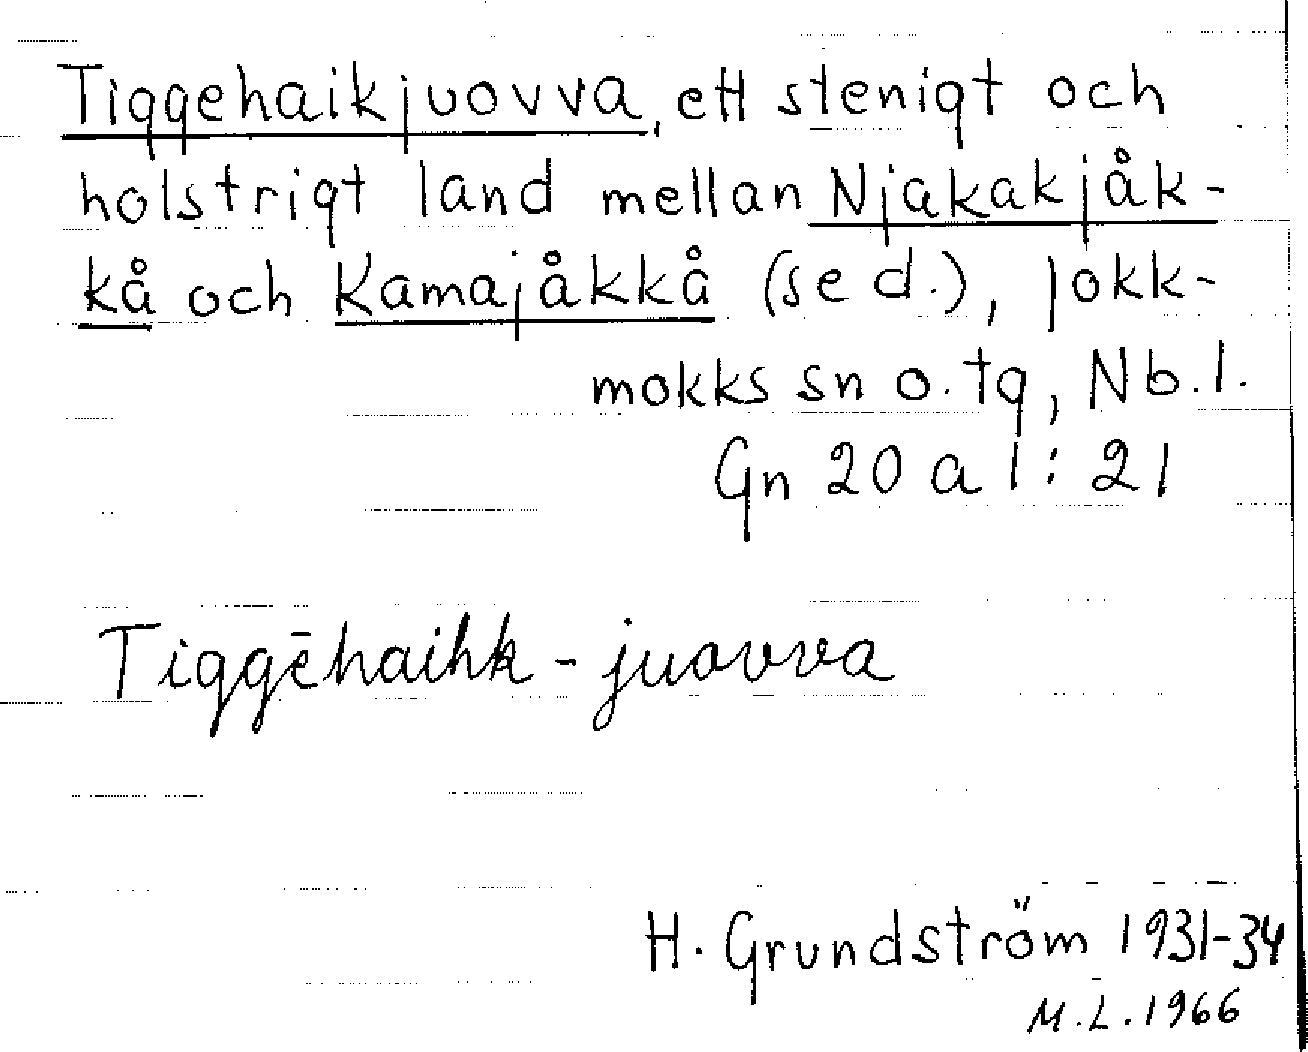 Tiggehaikjuovva, ett stenigt och
holstrigt land mellan Njakakjåk-
kå och Kamajåkkå (se d.), Jokk-
mokks sn o. tg, Nb.l.
Gn 20 a 1 : 21
Tiggēhaihk - juovva
H. Grundström 1931-34
M.L. 1966